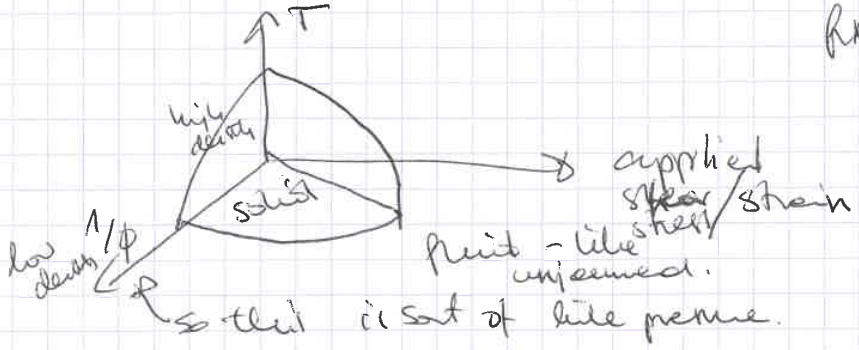 T
high
density
applied
solid
shear / strain
stress
low
density
1/φ
fluid - like
unjammed.
so this is sort of like pressure.